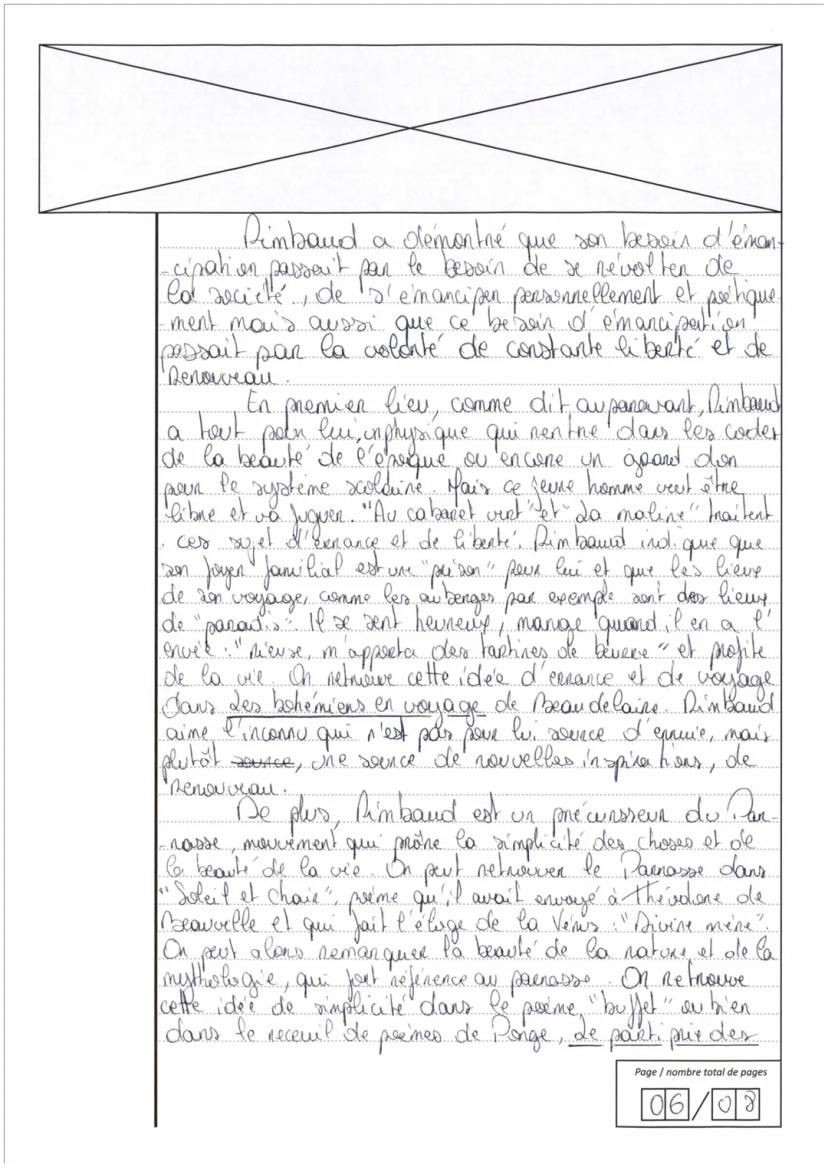 Rimbaud a démontré que son besoin d'éman-
-cipation passait par le besoin de se révolter de
la société, de s'émanciper personnellement et poétique-
-ment mais aussi que ce besoin d'émancipation
passait par la volonté de constante liberté et de
Renouveau.
En premier lieu, comme dit auparavant, Rimbaud
a tout pour lui, un physique qui rentre dans les codes
de la beauté de l'époque ou encore un grand don
pour le système scolaire. Mais ce jeune homme veut être
libre et va fuguer. "Au cabaret vert" et "La maline" traitent
ces sujet d'errance et de liberté. Rimbaud indique que
son foyer familial est une "prison" pour lui et que les lieux
de son voyage, comme les auberges par exemple sont des lieux
de "paradis". Il se sent heureux, mange quand il en a l'
envie : "rieuse, m'apporta des tartines de beurre" et profite
de la vie. On retrouve cette idée d'errance et de voyage
dans Les bohémiens en voyage de Beaudelaire. Rimbaud
aime l'inconnu qui n'est pas pour lui source d'ennuie, mais
plutôt source, une source de nouvelles inspirations, de
Renouveau.
De plus, Rimbaud est un précursseur du Par-
-nasse, mouvement qui prône la simplicité des choses et de
la beauté de la vie. On peut retrouver le Parnasse dans
"Soleil et Chair", poème qu'il avait envoyé à Théodore de
Beauvelle et qui fait l'éloge de la Vénus : "Divine mère".
On peut alors remarquer la beauté de la nature et de la
mythologie, qui font référence au parnasse. On Retrouve
cette idée de simplicité dans le poème "buffet" ou bien
dans le receuil de poèmes de Ponge, Le parti prie des
Page / nombre total de pages
06/08